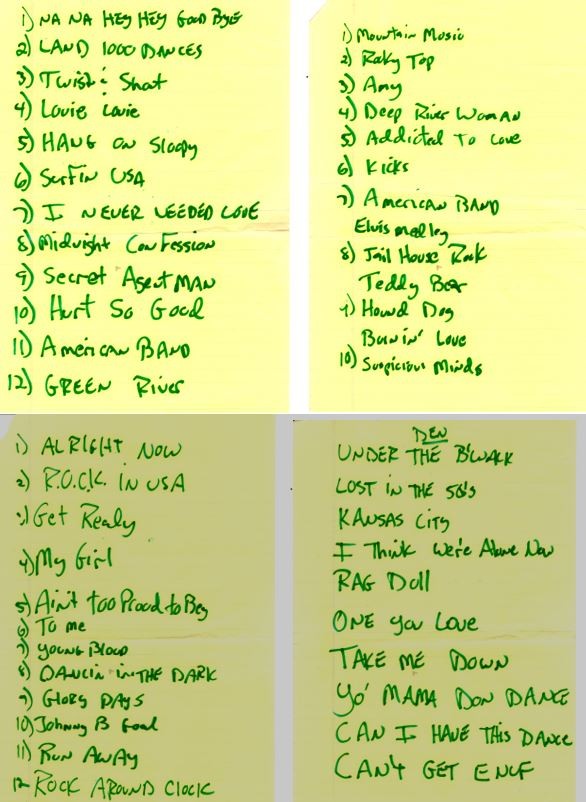 1) NA NA HEY HEY GOOD BYE
2) LAND 1000 DANCES
3) Twist & Shout
4) Louie Louie
5) HANG ON Sloopy
6) Surfin USA
7) I NEVER NEEDED LOVE
8) Midnight Confession
9) Secret Agent MAN
10) Hurt So Good
11) American BAND
12) GREEN River
1) Mountain Music
2) Rocky Top
3) Amy
4) Deep River Woman
5) Addicted To Love
6) Kicks
7) American BAND
Elvis medley
8) Jail House Rock
Teddy Bear
9) Hound Dog
Burnin' Love
10) Suspicious Minds
1) ALRIGHT NOW
2) R.O.C.K. IN USA
3) Get Ready
4) My Girl
5) Ain't too Proud to Beg
6) To me
7) YOUNG BLOOD
8) DANCIN IN THE DARK
9) GlORY DAYS
10) Johnny B Good
11) RUN AWAY
12 ROCK AROUND CLOCK
DEN
UNDER THE B'WALK
LOST IN THE 50'S
KANSAS CITY
I Think We're Alone Now
RAG Doll
ONE You LOVE
TAKE ME DOWN
YO' MAMA DON DANCE
CAN I HAVE THIS DANCE
CAN'T GET ENUF